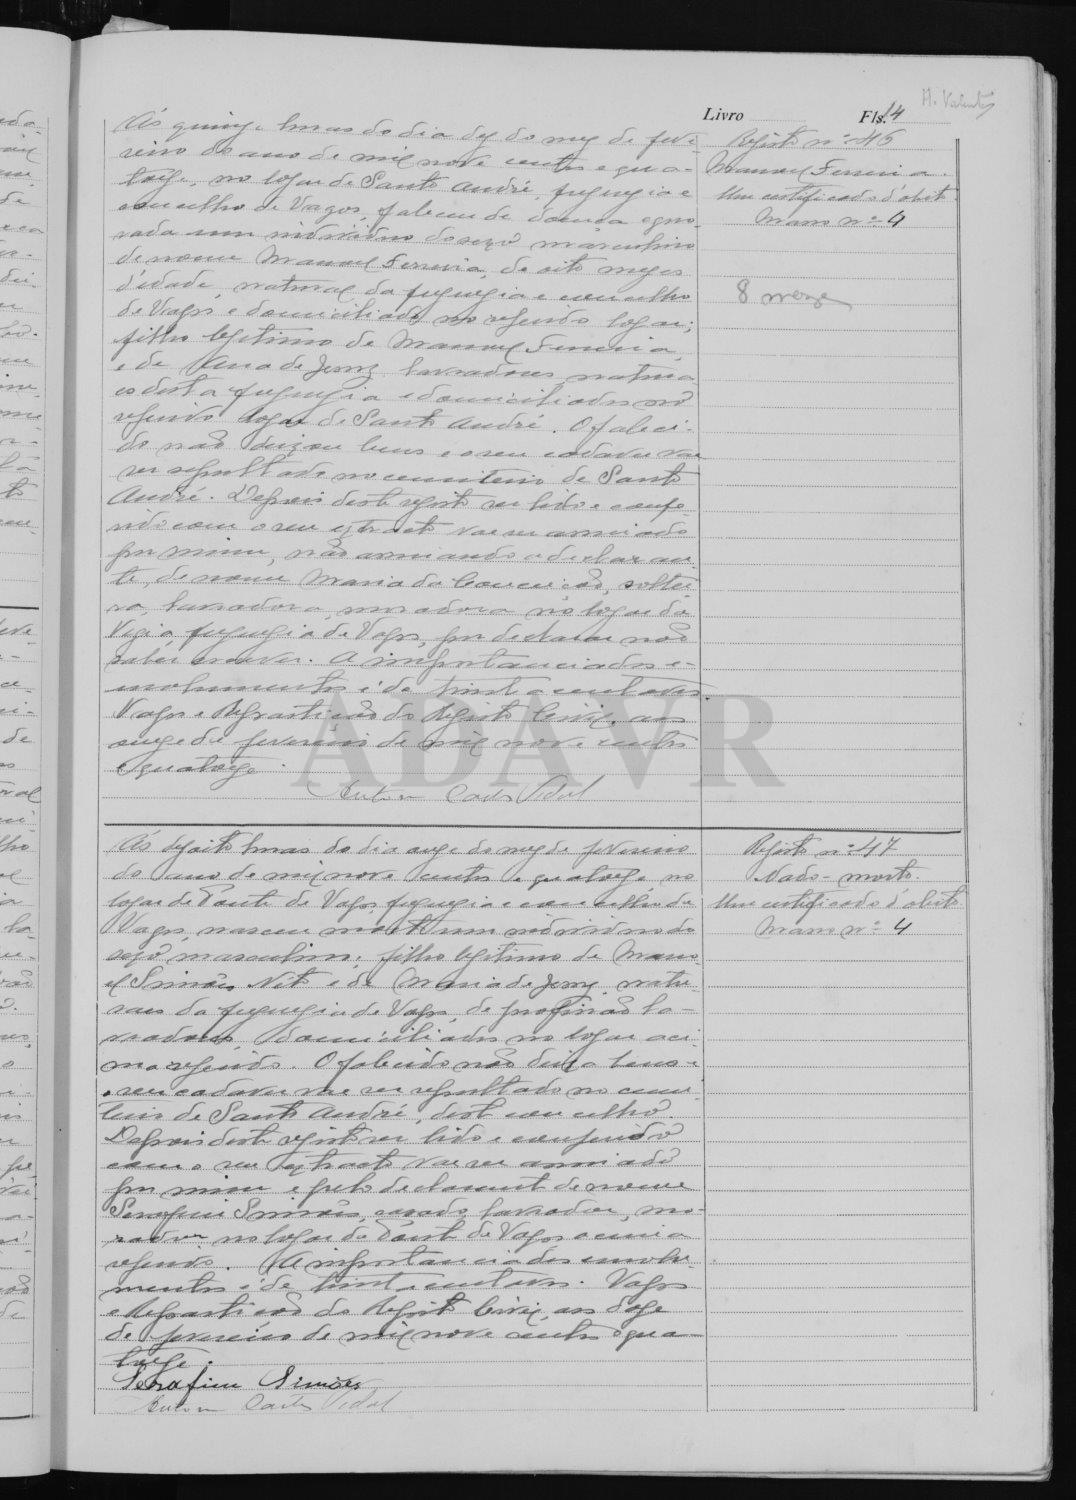 Livro Fls. 14
Ás quinze horas do dia dez do mez de feve-
reiro do ano de mil nove centos e qua-
torze, no logar de Santo André, freguezia e
concelho de Vagos, faleceu de doença egno-
rada um individuo do sexo masculino
de nome Manuel Ferreira, de oito mezes
d'idade, natural da freguezia e concelho
de Vagos e domiciliado no referido logar;
filho legitimo de Manuel Ferreira,
e de Ana de Jesus, lavradores, natura-
es desta freguezia e domiciliados no
referido logar de Santo André. O faleci-
do não deixou bens e o seu cadaver vae
ser sepultado no cemiterio de Santo
André. Depois deste registo ser lido e confe-
rido com o seu extracto vae ser assinado
por mim, não assinando a declaran-
te, de nome Maria da Conceição, soltei-
ra, lavradora, moradora no logar da
Vigia, freguezia de Vagos, por declarar não
saber escrever. A importancia dos e-
molumentos é de trinta centavos.
Vagos e Repartição do Registo Civil, aos
onze de fevereiro de mil nove centos
e quatorze.
Antonio Carlos Vidal
Registo nº 46
Manuel Ferreira.
Um certificado d'obito.
Masso nº 4
8 mezes
Ás dezoito horas do dia onze do mez de fevereiro
do ano de mil nove centos e quatorze, no
logar de Ponte de Vagos, freguezia e concelho de
Vagos, nasceu morto um individuo do
sexo masculino, filho legitimo de Manu-
el Simões Neto e de Maria de Jesus, natu-
raes da freguezia de Vagos, de profissão la-
vradores, domiciliados no logar aci-
ma referido. O falecido não deixa bens e
o seu cadaver vae ser sepultado no cemi-
terio de Santo André, deste concelho.
Depois deste registo ser lido e conferido
com o seu extracto vae ser assinado
por mim e pelo declarante de nome
Serafim Simões, casado, lavrador, mo-
rador no logar da Ponte de Vagos acima
referido. A importancia dos emolu-
mentos é de trinta centavos. Vagos
e Repartição do Registo Civil, aos doze
de fevereiro de mil nove centos e qua-
torze.
Serafim Simões
Antonio Carlos Vidal
Registo nº 47
Nado-morto.
Um certificado d'obito
Masso nº 4
ADAVR